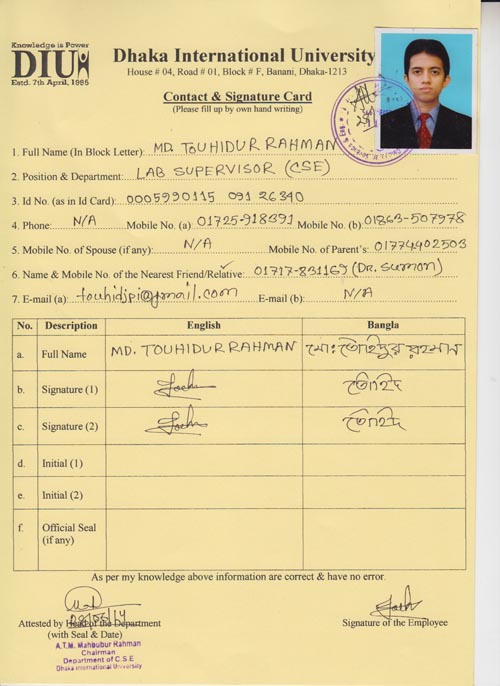 Knowledge is Power
DIU
Estd. 7th April, 1995
Dhaka International University
House # 04, Road # 01, Block # F, Banani, Dhaka-1213
Contact & Signature Card
(Please fill up by own hand writing)
1. Full Name (In Block Letter): MD. TOUHIDUR RAHMAN
2. Position & Department: LAB SUPERVISOR (CSE)
3. Id No. (as in Id Card): 0005990115 091 26340
4. Phone: N/A Mobile No. (a) 01725-918391 Mobile No. (b) 01863-507978
5. Mobile No. of Spouse (if any): N/A Mobile No. of Parent's: 01774402503
6. Name & Mobile No. of the Nearest Friend/Relative: 01717-831169 (DR. SUMON)
7. E-mail (a): touhidjpi@gmail.com E-mail (b): N/A
No. Description English Bangla
a. Full Name MD. TOUHIDUR RAHMAN মোঃ তৌহিদুর রহমান
b. Signature (1) তৌহিদ
c. Signature (2) তৌহিদ
d. Initial (1)
e. Initial (2)
f. Official Seal
(if any)
As per my knowledge above information are correct & have no error.
Attested by Head of the Department
(with Seal & Date)
Signature of the Employee
A.T.M. Mahbubur Rahman
Chairman
Department of C.S.E
Dhaka International University